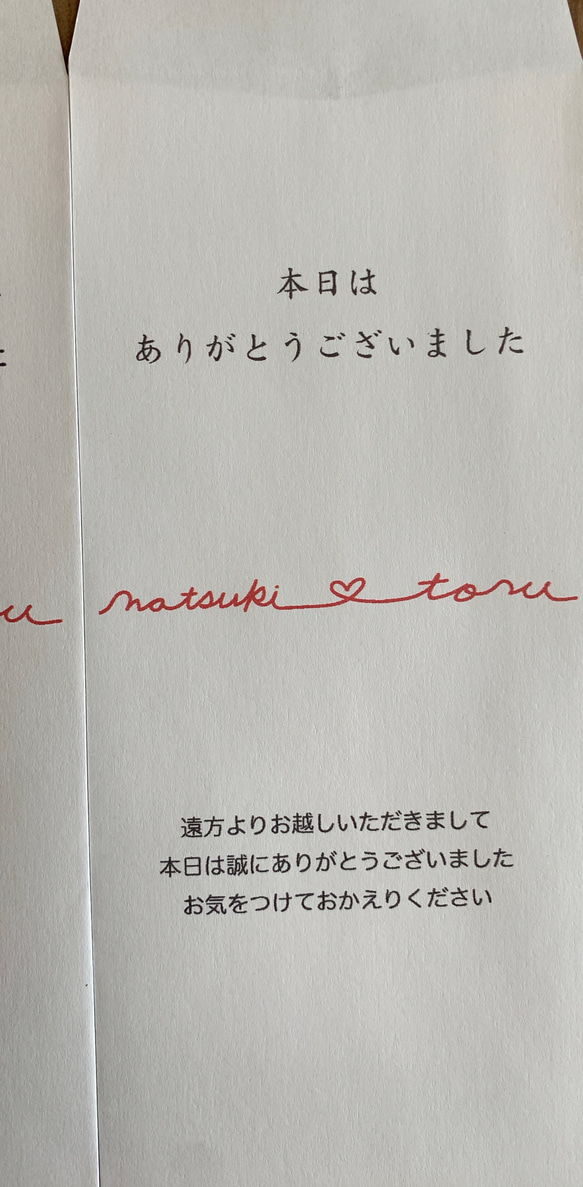 本日は
ありがとうございました
natsuki ♡ toru
遠方よりお越しいただきまして
本日は誠にありがとうございました
お気をつけておかえりください